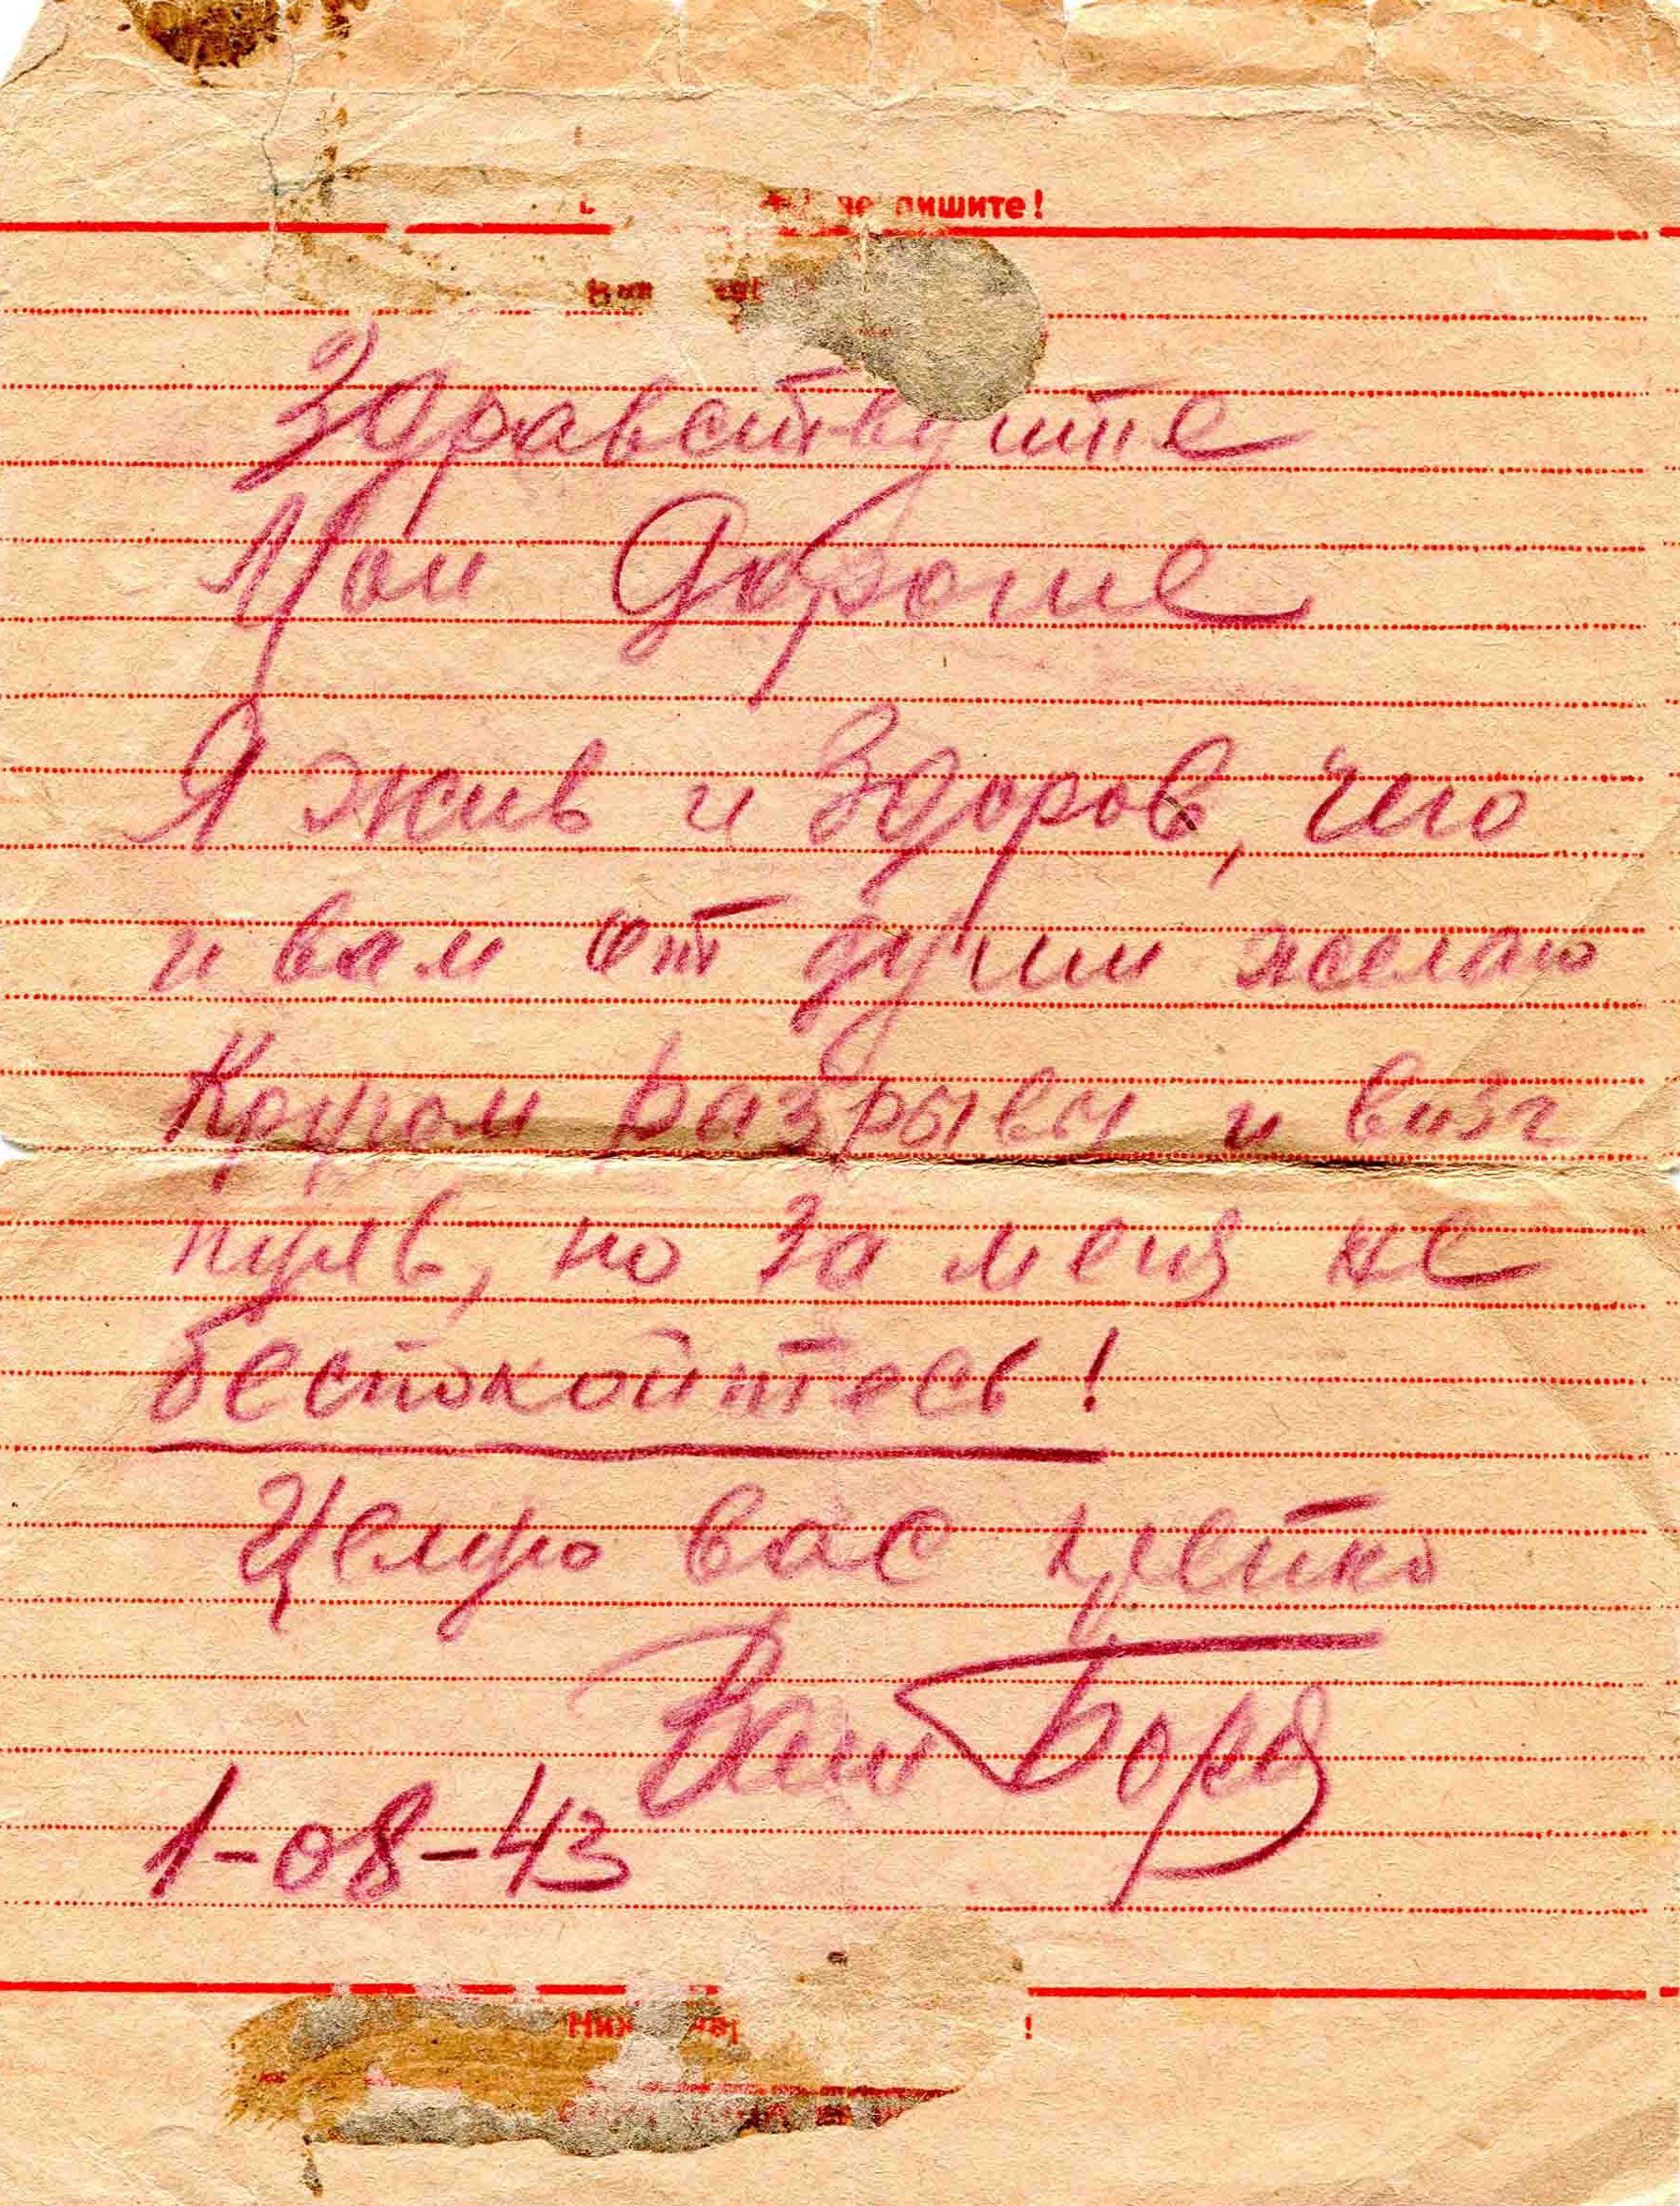 не пишите!
Здравствуйте
Мои Дорогие
Я жив и Здоров, чего
и вам от души желаю
Кругом разрывы и визг
пуль, но за меня не
беспокойтесь!
Целую вас крепко
Ваш Боря
1-08-43